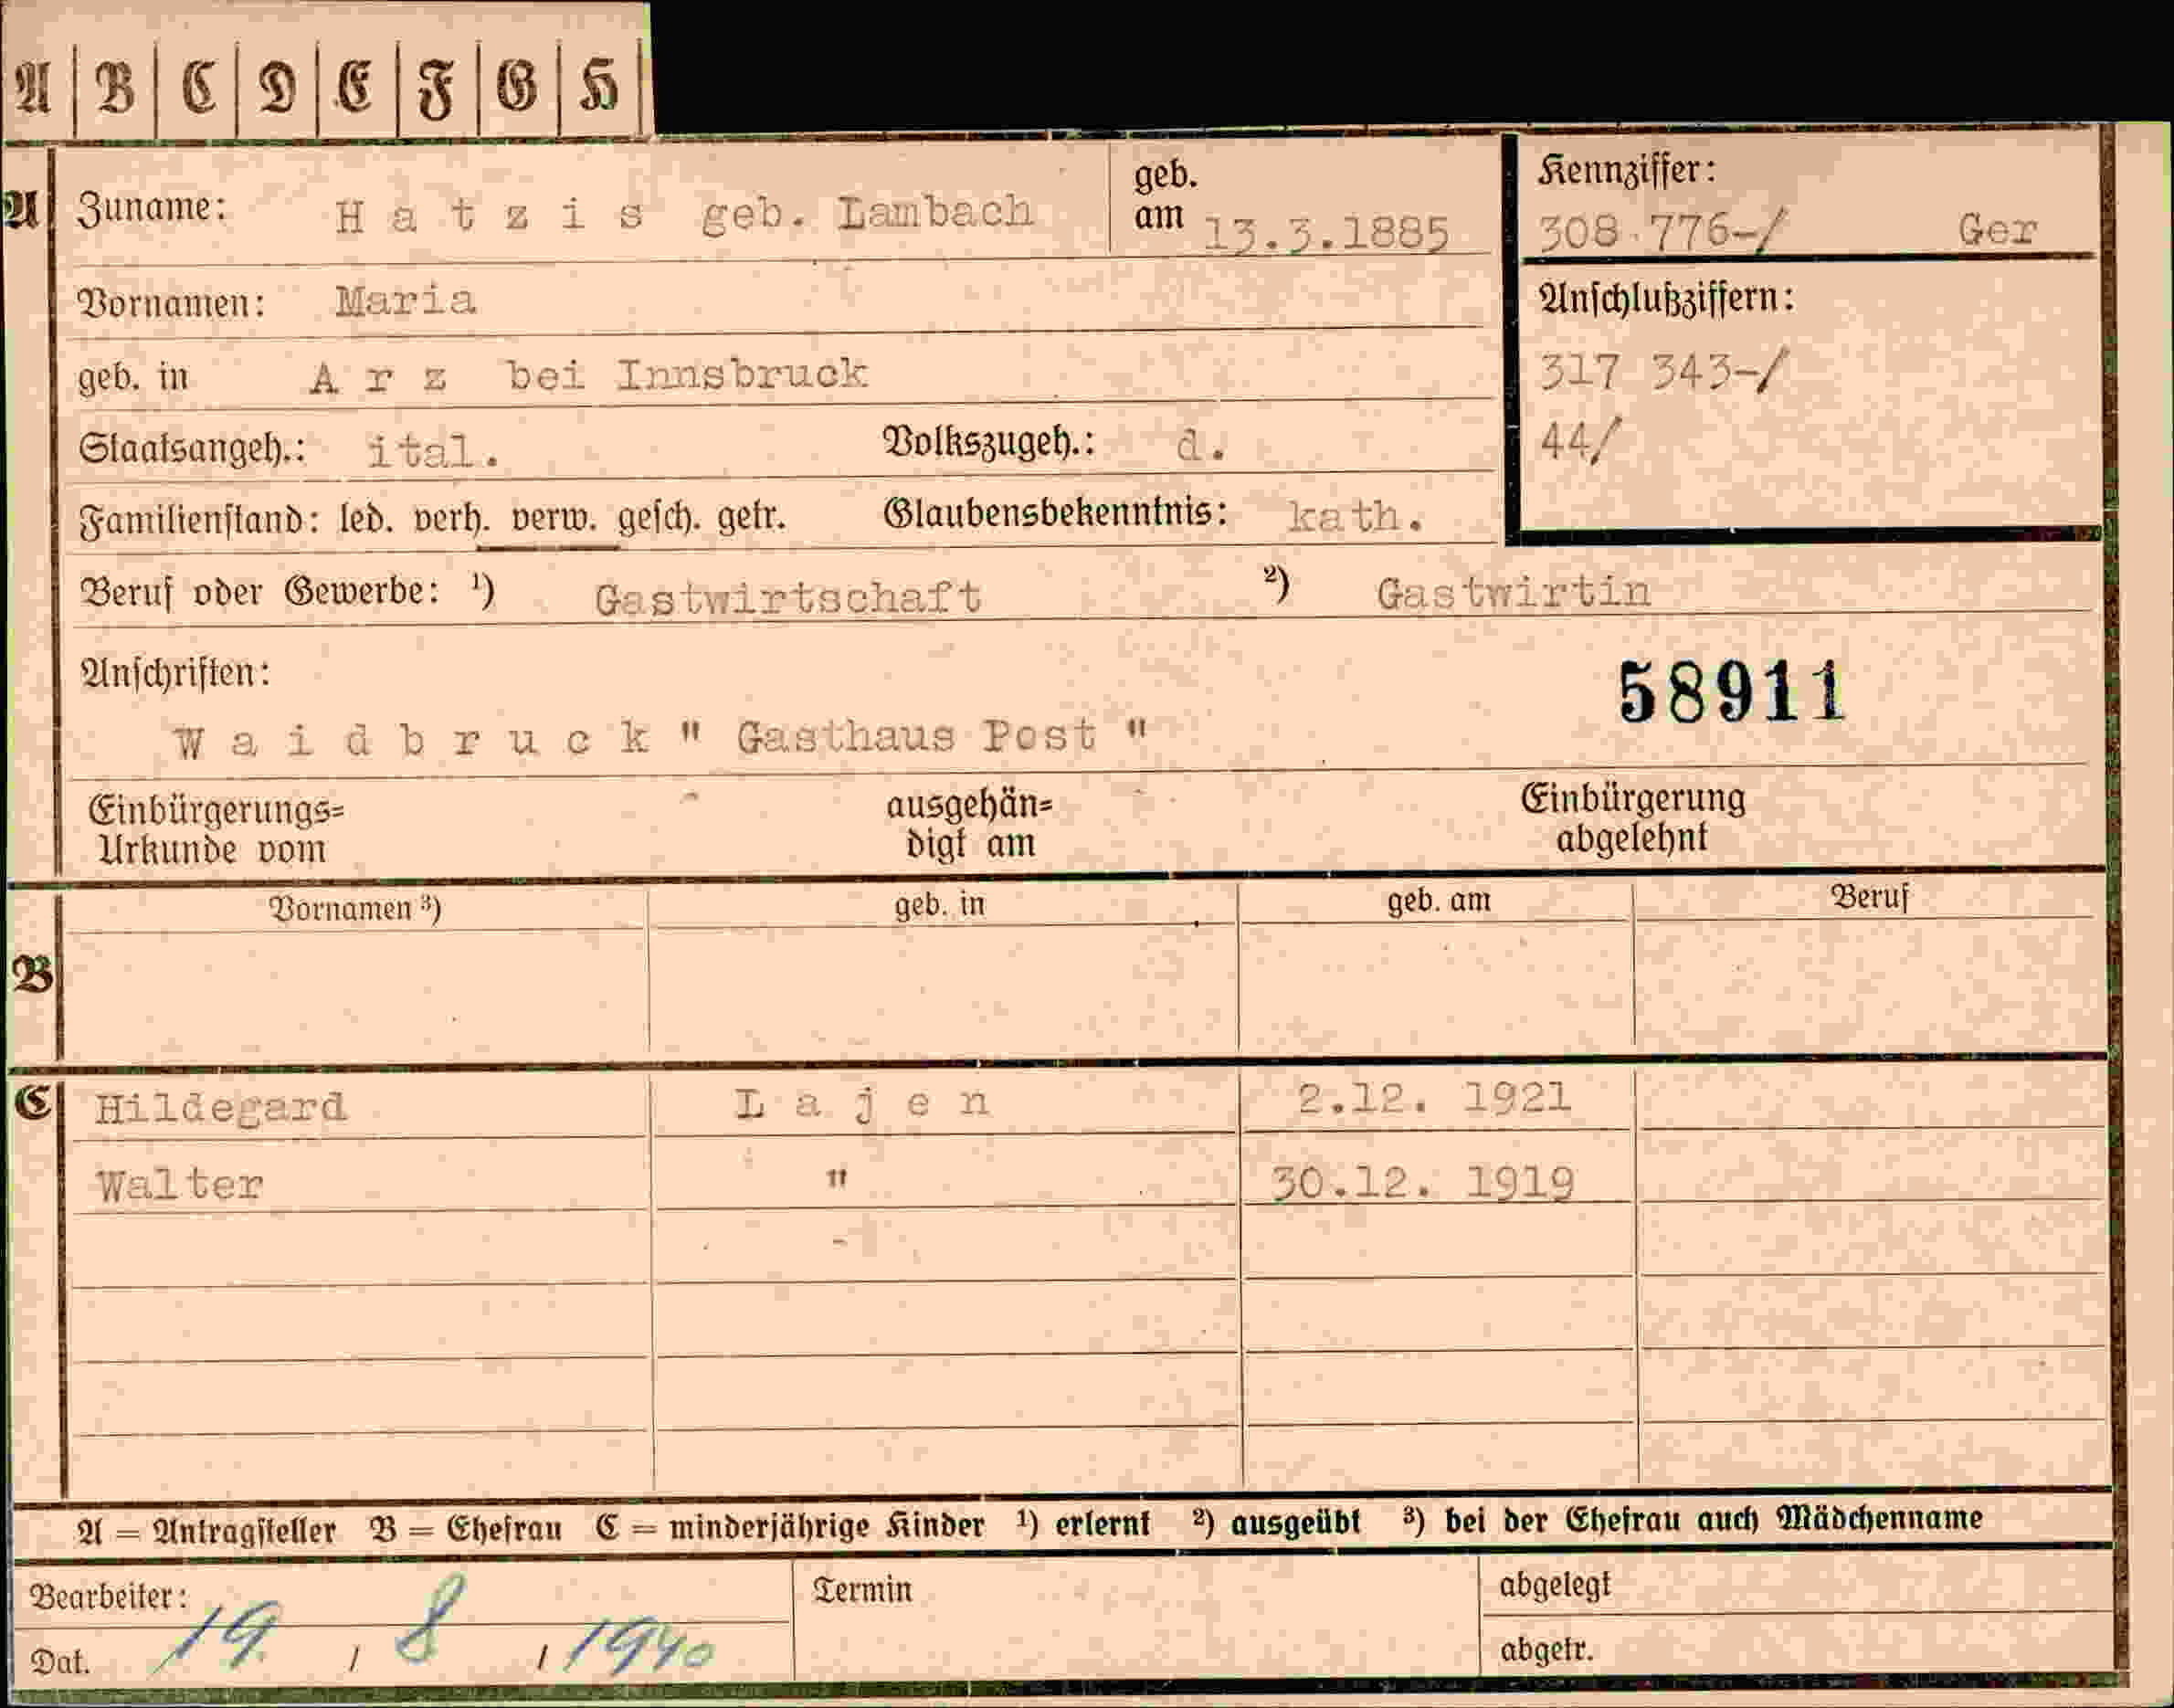 A B C D E F G H
A Zuname: Hatzis geb. Lambach geb. am 13.3.1885 Kennziffer: 308 776-/ Ger
Vornamen: Maria Anschlußziffern:
geb. in Arz bei Innsbruck 317 343-/
Staatsangeh.: ital. Volkszugeh.: d. 44/
Familienstand: led. verh. verw. gesch. getr. Glaubensbekenntnis: kath.
Beruf oder Gewerbe: ¹) Gastwirtschaft ²) Gastwirtin
Anschriften: 58911
Waidbruck " Gasthaus Post "
Einbürgerungs= ausgehän= Einbürgerung
Urkunde vom digt am abgelehnt
B Vornamen ³) geb. in geb. am Beruf
C Hildegard Lajen 2.12. 1921
Walter " 30.12. 1919
A = Antragsteller B = Ehefrau C = minderjährige Kinder ¹) erlernt ²) ausgeübt ³) bei der Ehefrau auch Mädchenname
Bearbeiter: Termin abgelegt
Dat. 19 / 8 / 1940 abgetr.